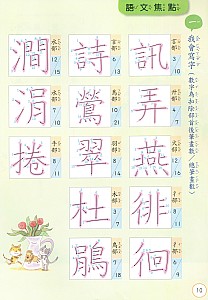 語文焦點
一 我會寫字(數字為扣除部首後筆畫數/總筆畫數)
訊 言部 3/10
弄 廾部 4/7
燕 火部 12/16
徘 彳部 8/11
徊 彳部 6/9
詩 言部 6/13
鶯 鳥部 10/21
翠 羽部 8/14
杜 木部 3/7
鵑 鳥部 7/18
澗 水部 12/15
涓 水部 7/10
捲 手部 8/11
10